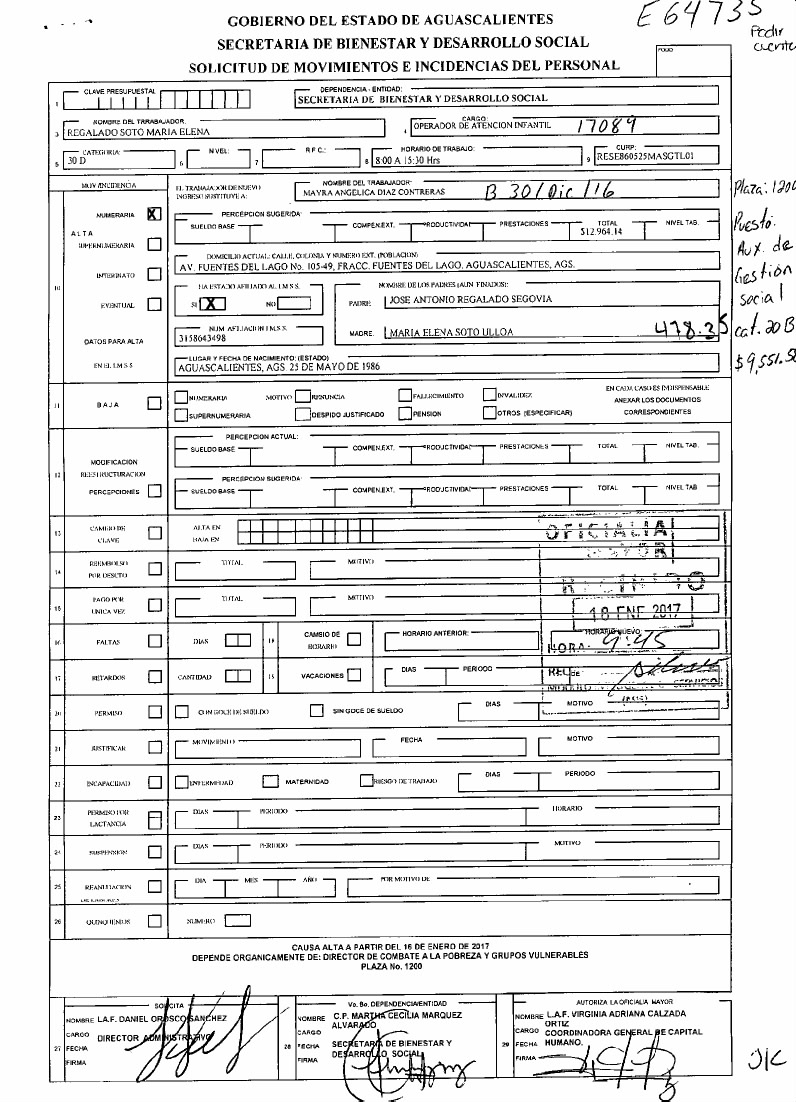 E 64735
Pedir
cuenta
GOBIERNO DEL ESTADO DE AGUASCALIENTES
SECRETARIA DE BIENESTAR Y DESARROLLO SOCIAL
SOLICITUD DE MOVIMIENTOS E INCIDENCIAS DEL PERSONAL
FOLIO
1 CLAVE PRESUPUESTAL DEPENDENCIA - ENTIDAD:
SECRETARIA DE BIENESTAR Y DESARROLLO SOCIAL
NOMBRE DEL TRABAJADOR: CARGO:
3 REGALADO SOTO MARIA ELENA 4 OPERADOR DE ATENCION INFANTIL 17089
CATEGORIA: NIVEL: R.F.C.: HORARIO DE TRABAJO: CURP:
5 30 D 6 7 8 8:00 A 15:30 Hrs 9 RESE860525MASGTL01
MOV/INCIDENCIA EL TRABAJADOR DE NUEVO INGRESO SUSTITUYE A: NOMBRE DEL TRABAJADOR:
MAYRA ANGELICA DIAZ CONTRERAS B 30/Dic/16
Plaza: 1200
NUMERARIA X PERCEPCION SUGERIDA
SUELDO BASE COMPEN.EXT. PRODUCTIVIDAD PRESTACIONES TOTAL NIVEL TAB.
$12,964.14
Puesto:
Aux. de
Gestión
social
cat. 20B
$9,551.58
ALTA
SUPERNUMERARIA DOMICILIO ACTUAL: CALLE, COLONIA Y NUMERO EXT. (POBLACION)
AV. FUENTES DEL LAGO No. 105-49, FRACC. FUENTES DEL LAGO, AGUASCALIENTES, AGS.
INTERINATO
10 HA ESTADO AFILIADO AL I.M.S.S. NOMBRE DE LOS PADRES (AUN FINADOS):
EVENTUAL SI X NO PADRE: JOSE ANTONIO REGALADO SEGOVIA
NUM AFILIACION I.M.S.S.
DATOS PARA ALTA 3158643498 MADRE: MARIA ELENA SOTO ULLOA 478.35
LUGAR Y FECHA DE NACIMIENTO: (ESTADO)
EN EL I.M.S.S AGUASCALIENTES, AGS 25 DE MAYO DE 1986
11 BAJA NUMERARIA MOTIVO RENUNCIA FALLECIMIENTO INVALIDEZ EN CADA CASO ES INDISPENSABLE
ANEXAR LOS DOCUMENTOS
SUPERNUMERARIA DESPIDO JUSTIFICADO PENSION OTROS (ESPECIFICAR) CORRESPONDIENTES
PERCEPCION ACTUAL:
SUELDO BASE COMPEN.EXT. PRODUCTIVIDAD PRESTACIONES TOTAL NIVEL TAB.
MODIFICACION
12 REESTRUCTURACION
PERCEPCION SUGERIDA
PERCEPCIONES SUELDO BASE COMPEN.EXT. PRODUCTIVIDAD PRESTACIONES TOTAL NIVEL TAB
13 CAMBIO DE CLAVE ALTA EN
BAJA EN
OFICIALIA
MAYOR
14 REEMBOLSO POR DESCTO TOTAL MOTIVO
RECIBIDO
15 PAGO POR UNICA VEZ TOTAL MOTIVO
18 ENE 2017
16 FALTAS DIAS 18 CAMBIO DE HORARIO HORARIO ANTERIOR: HORARIO NUEVO:
HORA: 9:45
17 RETARDOS CANTIDAD 19 VACACIONES DIAS PERIODO
20 PERMISO CON GOCE DE SUELDO SIN GOCE DE SUELDO DIAS MOTIVO
21 JUSTIFICAR MOVIMIENTO FECHA MOTIVO
22 INCAPACIDAD ENFERMEDAD MATERNIDAD RIESGO DE TRABAJO DIAS PERIODO
23 PERMISO POR LACTANCIA DIAS PERIODO HORARIO
24 SUSPENSION DIAS PERIODO MOTIVO
25 REANUDACION DIA MES AÑO POR MOTIVO DE
26 QUINQUENIOS NUMERO
CAUSA ALTA A PARTIR DEL 16 DE ENERO DE 2017
DEPENDE ORGANICAMENTE DE: DIRECTOR DE COMBATE A LA POBREZA Y GRUPOS VULNERABLES
PLAZA No. 1200
SOLICITA
NOMBRE L.A.F. DANIEL OROSCO SANCHEZ
CARGO DIRECTOR ADMINISTRATIVO
27 FECHA
FIRMA
Vo. Bo. DEPENDENCIA/ENTIDAD
NOMBRE C.P. MARTHA CECILIA MARQUEZ ALVARADO
CARGO
28 FECHA SECRETARIA DE BIENESTAR Y
FIRMA DESARROLLO SOCIAL
AUTORIZA LA OFICIALIA MAYOR
NOMBRE L.A.F. VIRGINIA ADRIANA CALZADA ORTIZ
CARGO COORDINADORA GENERAL DE CAPITAL
29 FECHA HUMANO.
FIRMA